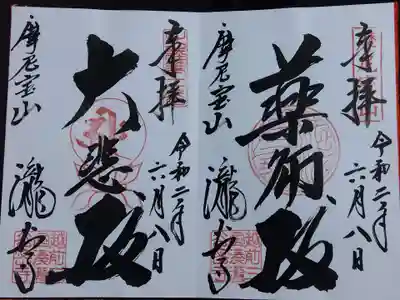 奉拝
令和二年
六月八日
薬師殿
摩尼宝山
瀧谷寺
奉拝
令和二年
六月八日
大悲殿
摩尼宝山
瀧谷寺